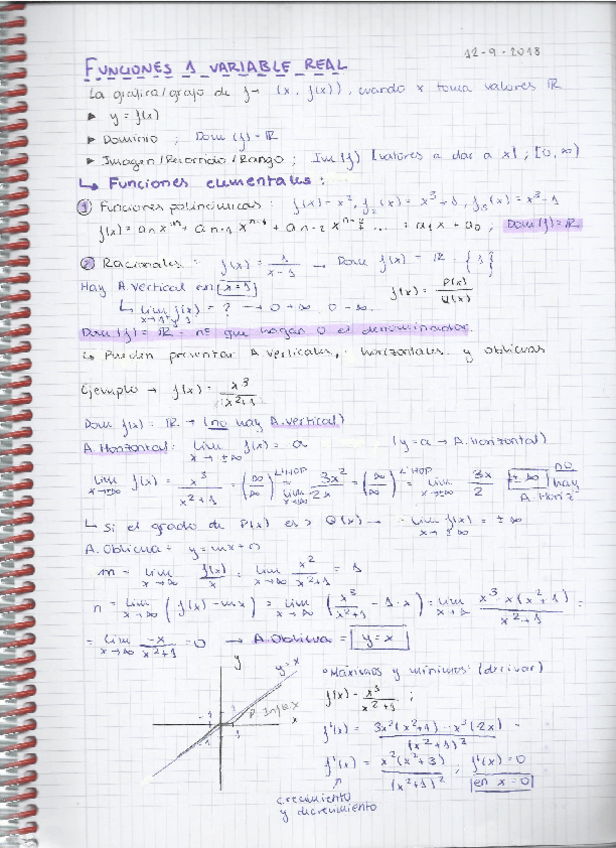 12-9-2018
FUNCIONES 1 VARIABLE REAL
La gráfica/grafo de f → (x, f(x)), cuando x toma valores ℝ
► y = f(x)
► Dominio ; Dom (f) = ℝ
► Imagen/Recorrido/Rango ; Im (f) [valores a dar a x] ; [0, ∞)
↳ Funciones elementales :
① Funciones polinómicas : f(x) = x², f₂(x) = x³+1, f₃(x) = x³-1
f(x) = aₙxⁿ + aₙ₋₁xⁿ⁻¹ + aₙ₋₂xⁿ⁻² ... = a₁x + a₀ ; Dom(f) = ℝ
② Racionales : f(x) = 1/(x-1) → Dom f(x) = ℝ - {1}
Hay A. vertical en x=1 f(x) = P(x)/Q(x)
↳ lim f(x) = ? → 0 +∞ 0 -∞
Dom (f) = ℝ - nº que hagan 0 el denominador.
↳ Pueden presentar A. verticales, horizontales y oblicuas
Ejemplo → f(x) = x³/(x²+1)
Dom f(x) = ℝ → (no hay A. vertical)
A. Horizontal: lim x→±∞ f(x) = a (y=a → A. horizontal)
lim x→±∞ f(x) = x³/(x²+1) = (∞/∞) L'HOP = lim x→±∞ 3x²/2x = (∞/∞) L'HOP = lim x→±∞ 3x/2 = ±∞ no hay A. Horiz
↳ Si el grado de P(x) es > Q(x) → lim x→±∞ f(x) = ±∞
A. Oblicua : y = mx + n
m = lim x→∞ f(x)/x = lim x→∞ x²/(x²+1) = 1
n = lim x→∞ (f(x) - mx) = lim x→∞ (x³/(x²+1) - 1·x) = lim x→∞ x³ x(x²+1)/(x²+1) =
= lim x→∞ -x/(x²+1) = 0 → A. Oblicua = y = x
y
y=x
P. Inflex
x
1
-1
1
• Máximos y mínimos: (derivar)
f(x) = x³/(x²+1) ;
f'(x) = 3x²(x²+1) - x³(2x)/(x²+1)² =
f'(x) = x²(x²+3)/(x²+1)² ; f'(x) = 0
en x=0
crecimiento
y decrecimiento